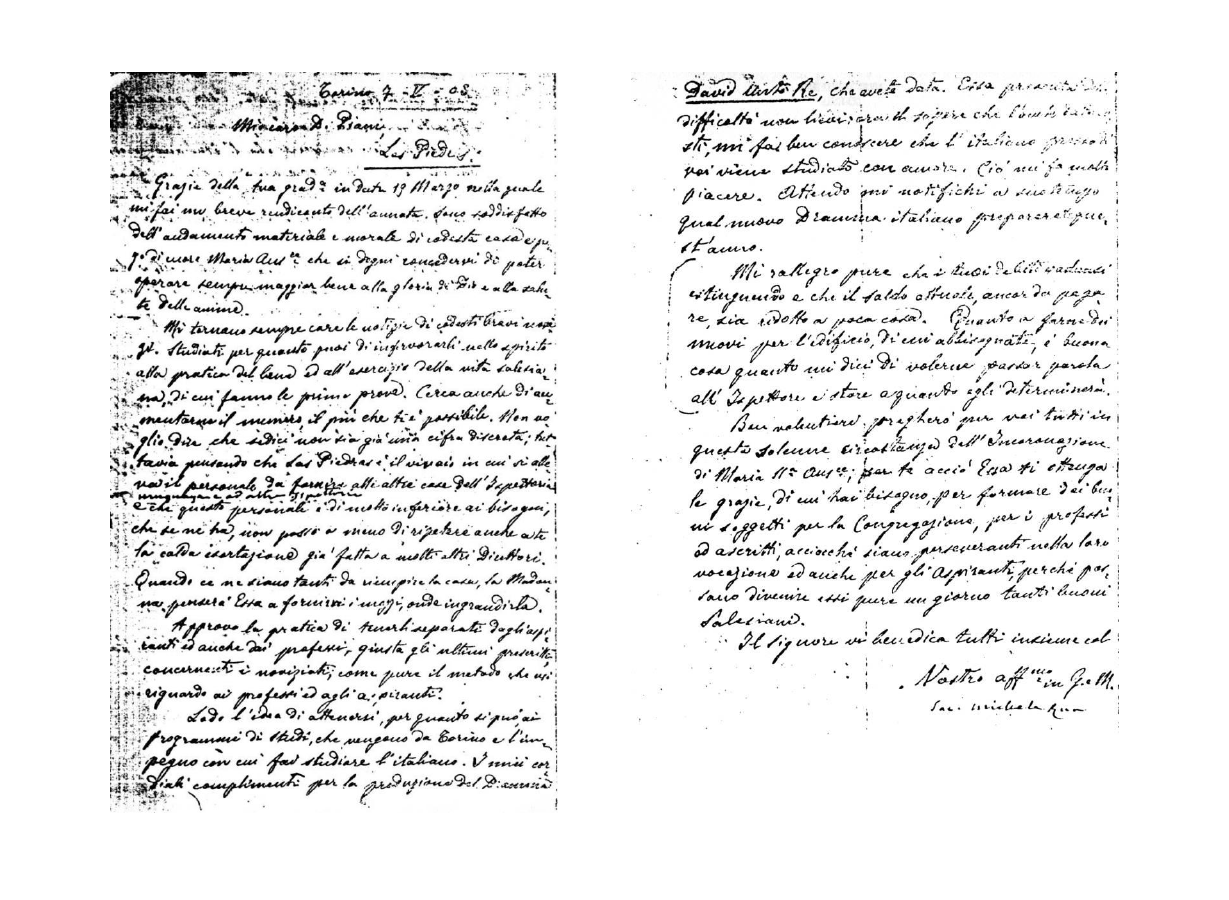 Torino 7 - V - 08
Mio caro D. Piani,
Las Piedras.
Grazie della tua grad.ª in data 19 Marzo nella quale
mi fai un breve rendiconto dell'annata. Sono soddisfatto
dell'andamento materiale e morale di codesta casa e pre-
go di cuore Maria Aus.ce che si degni concedervi di poter
operare sempre maggior bene alla gloria di Dio e alla salu-
te delle anime.
Mi tornano sempre care le notizie di codesti bravi novi
zi. Studiati per quanto puoi di infervorarli nello spirito
alla pratica del bene ed all'esercizio della vita salesia-
na, di cui fanno le prime prove. Cerca anche di au
mentarne il numero, il più che ti è possibile. Non vo
glio dire che sedici non sia già una cifra discreta; tut
tavia pensando che Las Piedras è il vivaio in cui si alle
va il personale da fornirsi alle altre case dell'Ispettoria
uruguaya e ad altre Ispettorie
e che questo personale è di molto inferiore ai bisogni,
che se ne ha, non posso a meno di ripetere anche a te
la calda esortazione già fatta a molti altri Direttori.
Quando ce ne siano tanti da riempire la casa, la Madon-
na penserà Essa a fornirvi i mezzi, onde ingrandirla.
Approvo la pratica di tenerli separati dagli aspi-
ranti ed anche dai professi, giusta gli ultimi prescritti
concernenti i noviziati, come pure il metodo che usi
riguardo ai professi ed agli aspiranti.
Lodo l'idea di attenersi, per quanto si può, ai
programmi di studi, che vengono da Torino e l'im-
pegno con cui fai studiare l'italiano. I miei cor
diali complimenti per la produzione del Dramma
David Unto Re, che avete data. Essa presenta
difficoltà non lievi; ora il sapere che l'avete
sti, mi fa ben conoscere che l'italiano presso di
voi viene studiato con amore. Ciò mi fa molto
piacere. Attendo mi notifichi a suo tempo
qual nuovo Dramma italiano preparerete que-
st'anno.
Mi rallegro pure che i tuoi debiti vadansi
estinguendo e che il saldo attuale, ancor da paga
re, sia ridotto a poca cosa. Quanto a farne dei
nuovi per l'edificio, di cui abbisognate, è buona
cosa quanto mi dici di volerne passar parola
all'Ispettore e stare a quanto egli determinerà.
Ben volentieri pregherò per voi tutti in
questa solenne circostanza dell'Incoronazione
di Maria SS.ª Aus.ce; per te acciò Essa ti ottenga
le grazie, di cui hai bisogno, per formare dei buo-
ni soggetti per la Congregazione, per i professi
ed ascritti, acciocchè siano perseveranti nella loro
vocazione ed anche per gli Aspiranti, perchè pos-
sano divenire essi pure un giorno tanti buoni
Salesiani.
Il Signore vi benedica tutti insieme col
Vostro aff.mo in G. e M.
Sac. Michele Rua